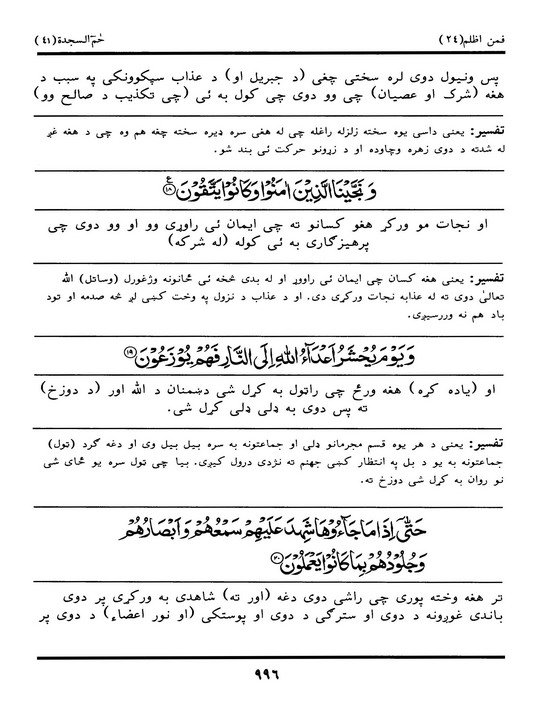 فمن اظلم(۲٤)
حٰمٓ السجدة(٤۱)
پس ونيول دوی لره سختی چغی (د جبريل او) د عذاب سپکوونکی په سبب د
هغه (شرک او عصيان) چی وو دوی چی کول به ئی (چی تکذيب د صالح وو)
تفسير: يعنی داسی يوه سخته زلزله راغله چی له هغی سره ډيره سخته چغه هم وه چی د هغه غږ
له شدته د دوی زهره وچاوده او د زړونو حرکت ئی بند شو.
وَ نَجَّيۡنَا الَّذِيۡنَ اٰمَنُوۡا وَ كَانُوۡا يَتَّقُوۡنَ ﴿۱۸﴾ ع
او نجات مو ورکړ هغو کسانو ته چی ايمان ئی راوړی وو او وو دوی چی
پرهيزګاری به ئی کوله (له شرکه)
تفسير: يعنی هغه کسان چی ايمان ئی راووړ او له بدی څخه ئی ځانونه وژغورل (وساتل) الله
تعالیٰ دوی ته له عذابه نجات ورکړی دی. او د عذاب د نزول په وخت کښی لږ څه صدمه او تود
باد هم نه ورسيږی.
وَ يَوۡمَ يُحۡشَرُ اَعۡدَآءُ اللّٰهِ اِلَى النَّارِ فَهُمۡ يُوۡزَعُوۡنَ ﴿۱۹﴾
او (ياده کړه) هغه ورځ چی راټول به کړل شی دښمنان د الله اور (د دوزخ)
ته پس دوی به ډلی ډلی کړل شی.
تفسير: يعنی د هر يوه قسم مجرمانو ډلی او جماعتونه به سره بيل بيل وی او دغه ګرد (ټول)
جماعتونه به يو د بل په انتظار کښی جهنم ته نژدی درول کيږی. بيا چی ټول سره يو ځای شی
نو روان به کړل شی دوزخ ته.
حَتّٰۤى اِذَا مَا جَآءُوۡهَا شَهِدَ عَلَيۡهِمۡ سَمۡعُهُمۡ وَ اَبۡصَارُهُمۡ
وَ جُلُوۡدُهُمۡ بِمَا كَانُوۡا يَعۡمَلُوۡنَ ﴿۲۰﴾
تر هغه وخته پوری چی راشی دوی دغه (اور ته) شاهدی به ورکړی پر دوی
باندی غوږونه د دوی او سترګی د دوی او پوستکی (او نور اعضاء) د دوی پر
۹۹٦